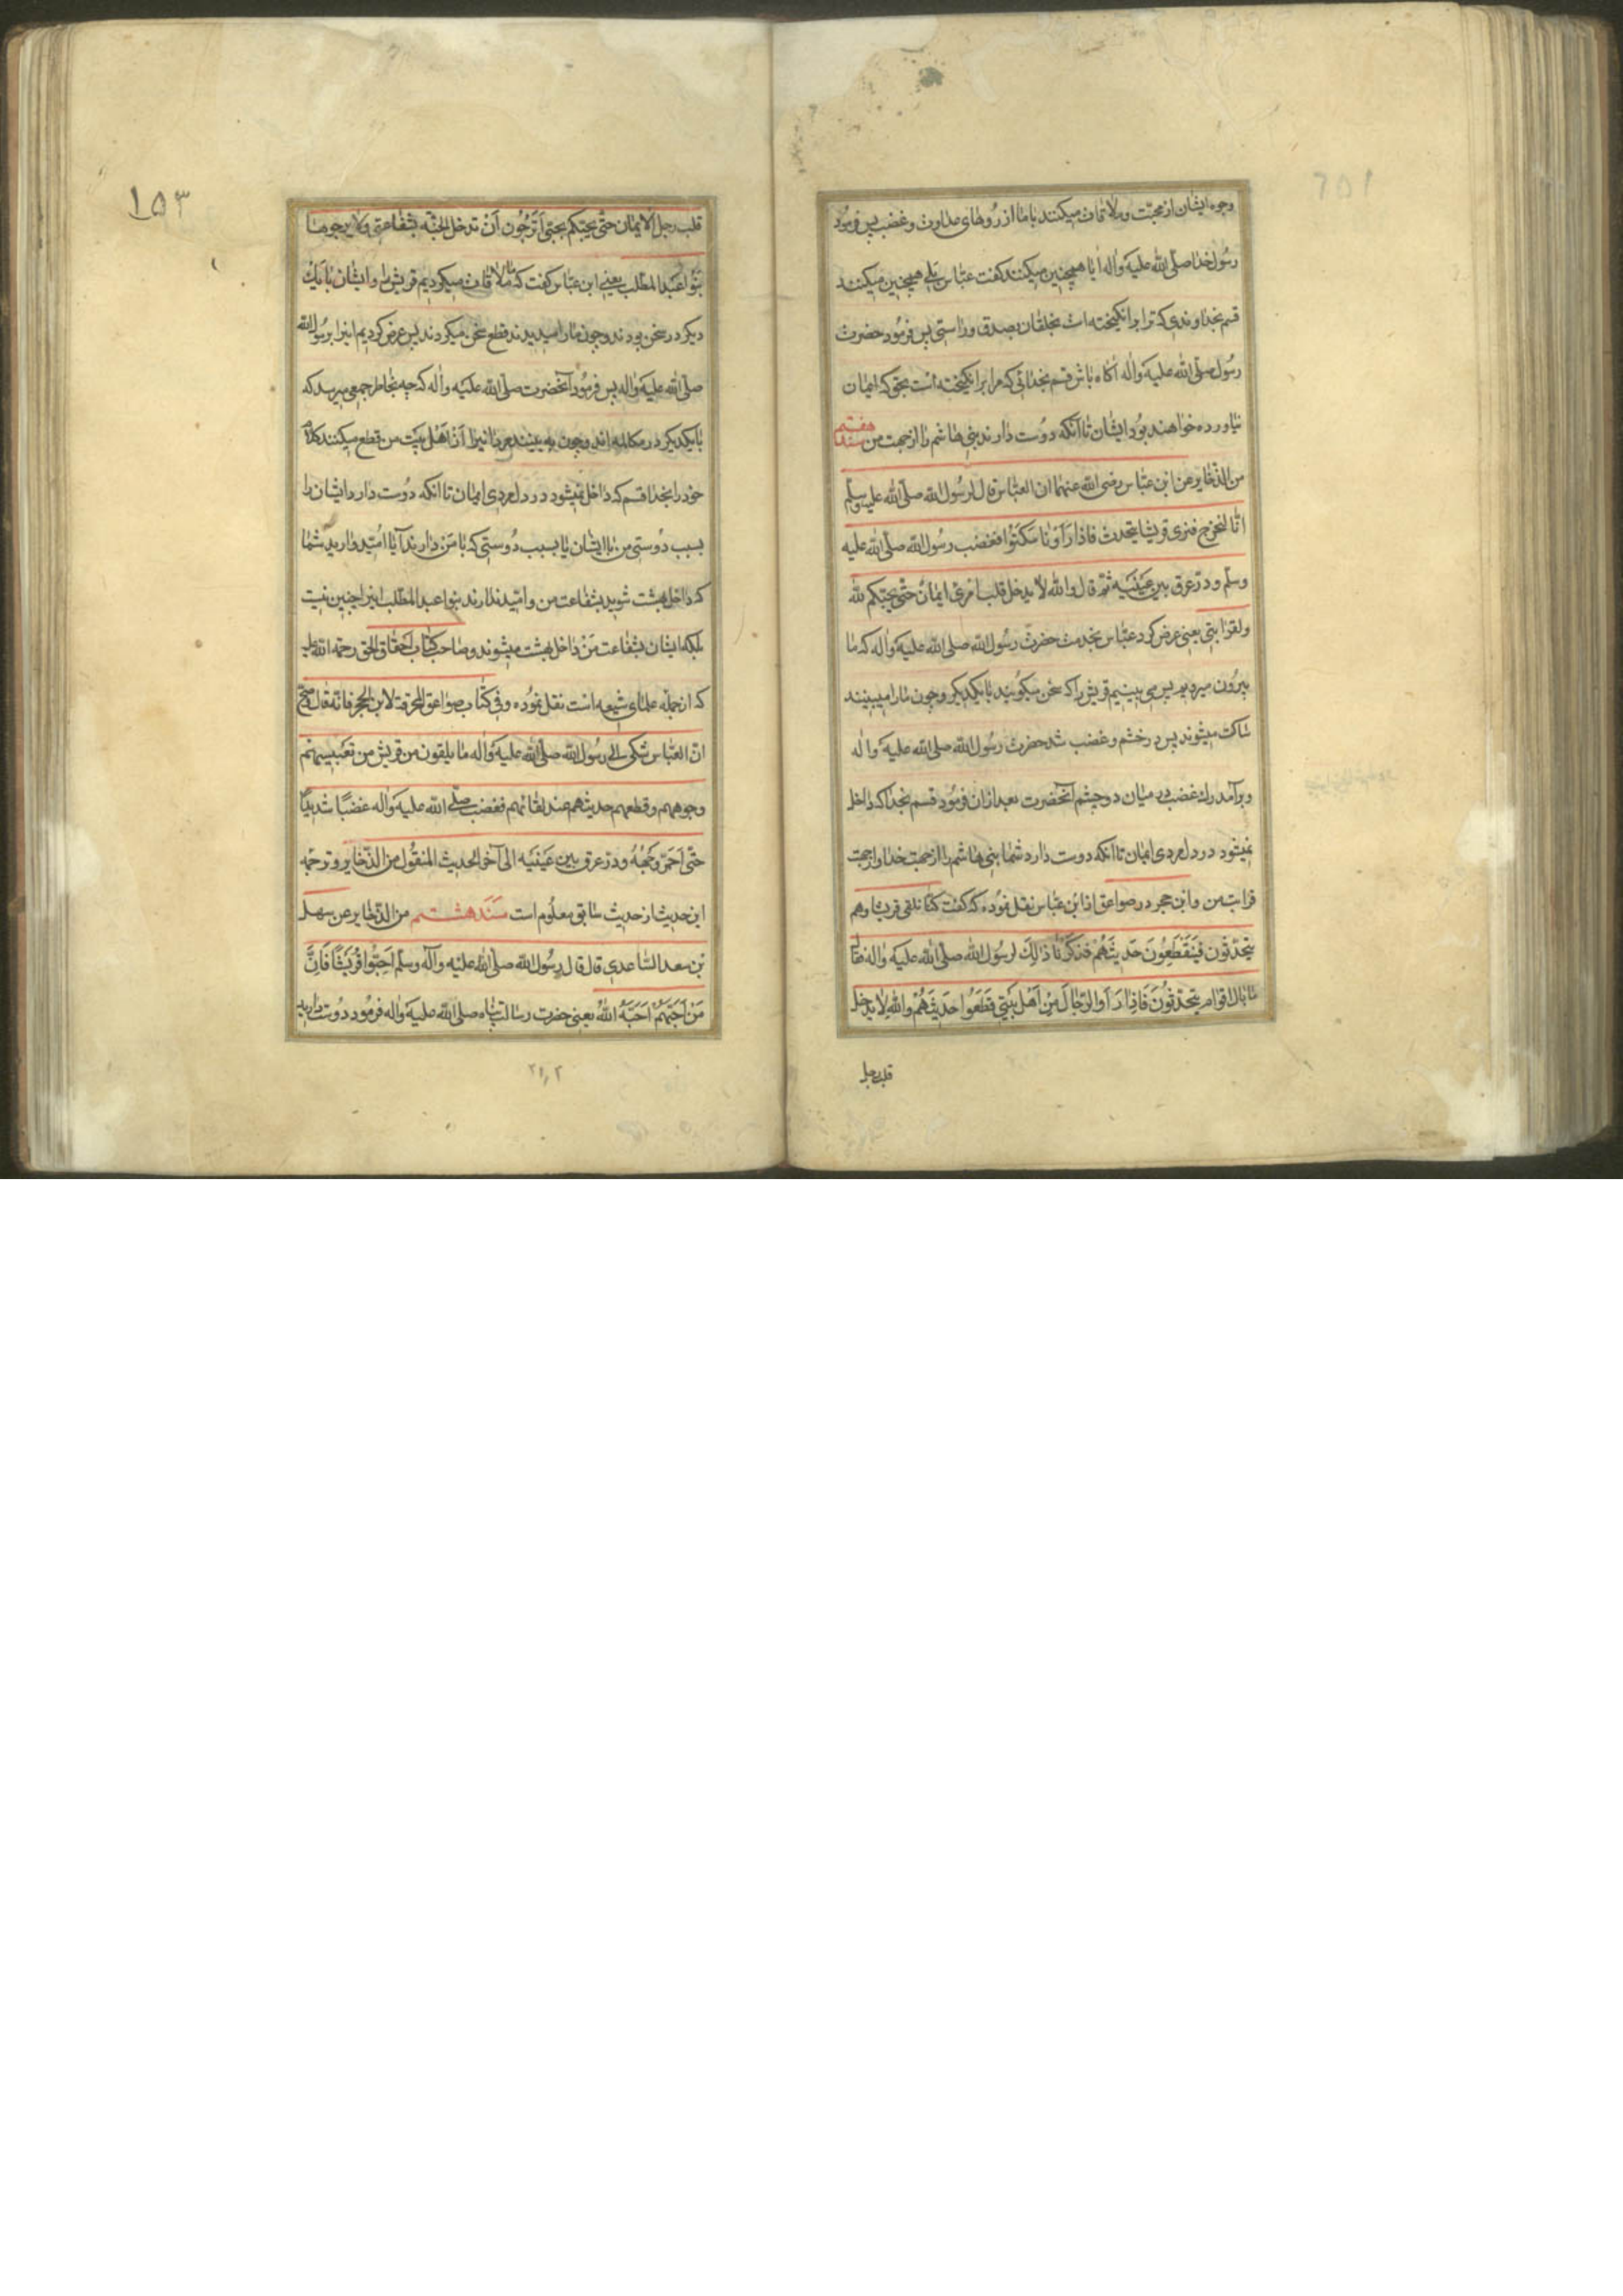 وجوه ایشان از محبت و ملاقات میکنند با ما از روهای عداوت و غضب پس فرمود
رسول خدا صلّی الله علیه واله ایا همچنین میکنند کفت عباس بلی همچنین میکنند
قسم بخداوندی که ترا برانکیخته است بخلقان بصدق و راستی پس فرمود حضرت
رسول صلّی الله علیه واله اکاه باش قسم بخدائی که مرا برانکیخته است بحق که ایمان
نیاورده خواهند بود ایشان تا آنکه دوست دارند بنی هاشم را از جهت من سند هفتم
من الذخایر عن ابن عباس رضی الله عنهما ان العباس قال لرسول الله صلّی الله علیه وسلّم
انا لنخرج فنری قریشا یتحدث فاذا رَاَوْنا سکَتُوا فغضب رسول الله صلّی الله علیه
وسلّم ودرّ عرق بین عَینَیه ثمّ قال والله لا یدخل قلب امرئ ایمان حتّی یحبّکم لله
ولقرابتی یعنی عرض کرد عباس بخدمت حضرت رسول الله صلی الله علیه واله که ما
بیرون میرویم پس می بینیم قریش را که سخن میکویند با یکدیکر و چون ما را میبینند
ساکت میشوند پس در خشم و غضب شد حضرت رسول الله صلی الله علیه واله
وبرآمد رك غضب در میان دو چشم آنحضرت بعد ازان فرمود قسم بخدا که داخل
نمیشود در دل مردی ایمان تا آنکه دوست دارد شما بنی هاشم را از جهت خدا و از جهت
قرابت من و ابن حجر در صواعق از ابن عباس نقل نموده که کفت کنّا نلقی قریشا وهم
یتحدّثون فیَنقَطِعُونَ حَدیثَهُم فذکَرْنا ذالِكَ لرسُول الله صلّی الله علیه واله فقال
ما بال اقوام یتحدّثُونَ فَاِذا رَاَوا الرّجالَ مِنْ اَهْل بَیْتی قَطَعَوا حَدیثَهُمْ والله لا یدخل
قلب رجل
۱۵۳
قلب رجل الایمان حتّی یحبّکم بحبّی اَتَرْجُون اَنْ تدخل الجنّة بشفاعتی ولا یرجوها
بَنُوا عَبْد المطّلب یعنی ابن عباس کفت که ما ملاقات میکردیم قریش را و ایشان با یك
دیکر در سخن بودند و چون ما را میدیدند قطع سخن میکردند پس عرض کردیم اینرا برسُول الله
صلّی الله علیه واله پس فرمُود آنحضرت صلّی الله علیه واله که چه بخاطر جمعی میرسد که
با یکدیکر در مکالمه اند و چون به بینند مردانیرا از اهل بیت من قطع میکنند کلام
خود را بخدا قسم که داخل نمیشود در دل مردی ایمان تا انکه دوست دارد ایشان را
بسبب دوستی من با ایشان یا بسبب دوستی که با مَنْ دارند آیا امّید وارید شما
که داخل بهشت شوید بشفاعت من و امّید ندارند بنوا عبد المطّلب اینرا چنین نیست
بلکه ایشان بشفاعت مَنْ داخل بهشت میشوند و صاحب کتاب احقاق الحق رحمة الله علیه
که از جمله علمای شیعه است نقل نموده وفی کتاب صواعق المحرقة لابن الحجر فانّه قال وصحّ
انّ العباس شکی الی رسول الله صلّی الله علیه واله ما یلقون من قریش من تعبیسهم
وجوههم وقطعهم حدیثهم عند لقائهم فغضب صلّی الله علیه واله غضبًا شدیدًا
حتّی احمَرّ وَجهُهُ ودرّ عرق بین عَینَیه الی آخر الحدیث المنقُول من الذّخایر وترجمه
این حدیث از حدیث سابق معلُوم است سَنَد هشتم من الذّخایر عن سهل
بن سعد السّاعدی قال قال رسُول الله صلّی الله علیه وآله وسلّم اَحِبُّوا قُرَیشًا فَاِنَّ
مَنْ اَحَبَّهُمْ اَحَبَّهُ اللهُ یعنی حضرت رسالت پناه صلی الله علیه واله فرمود دوست دارید